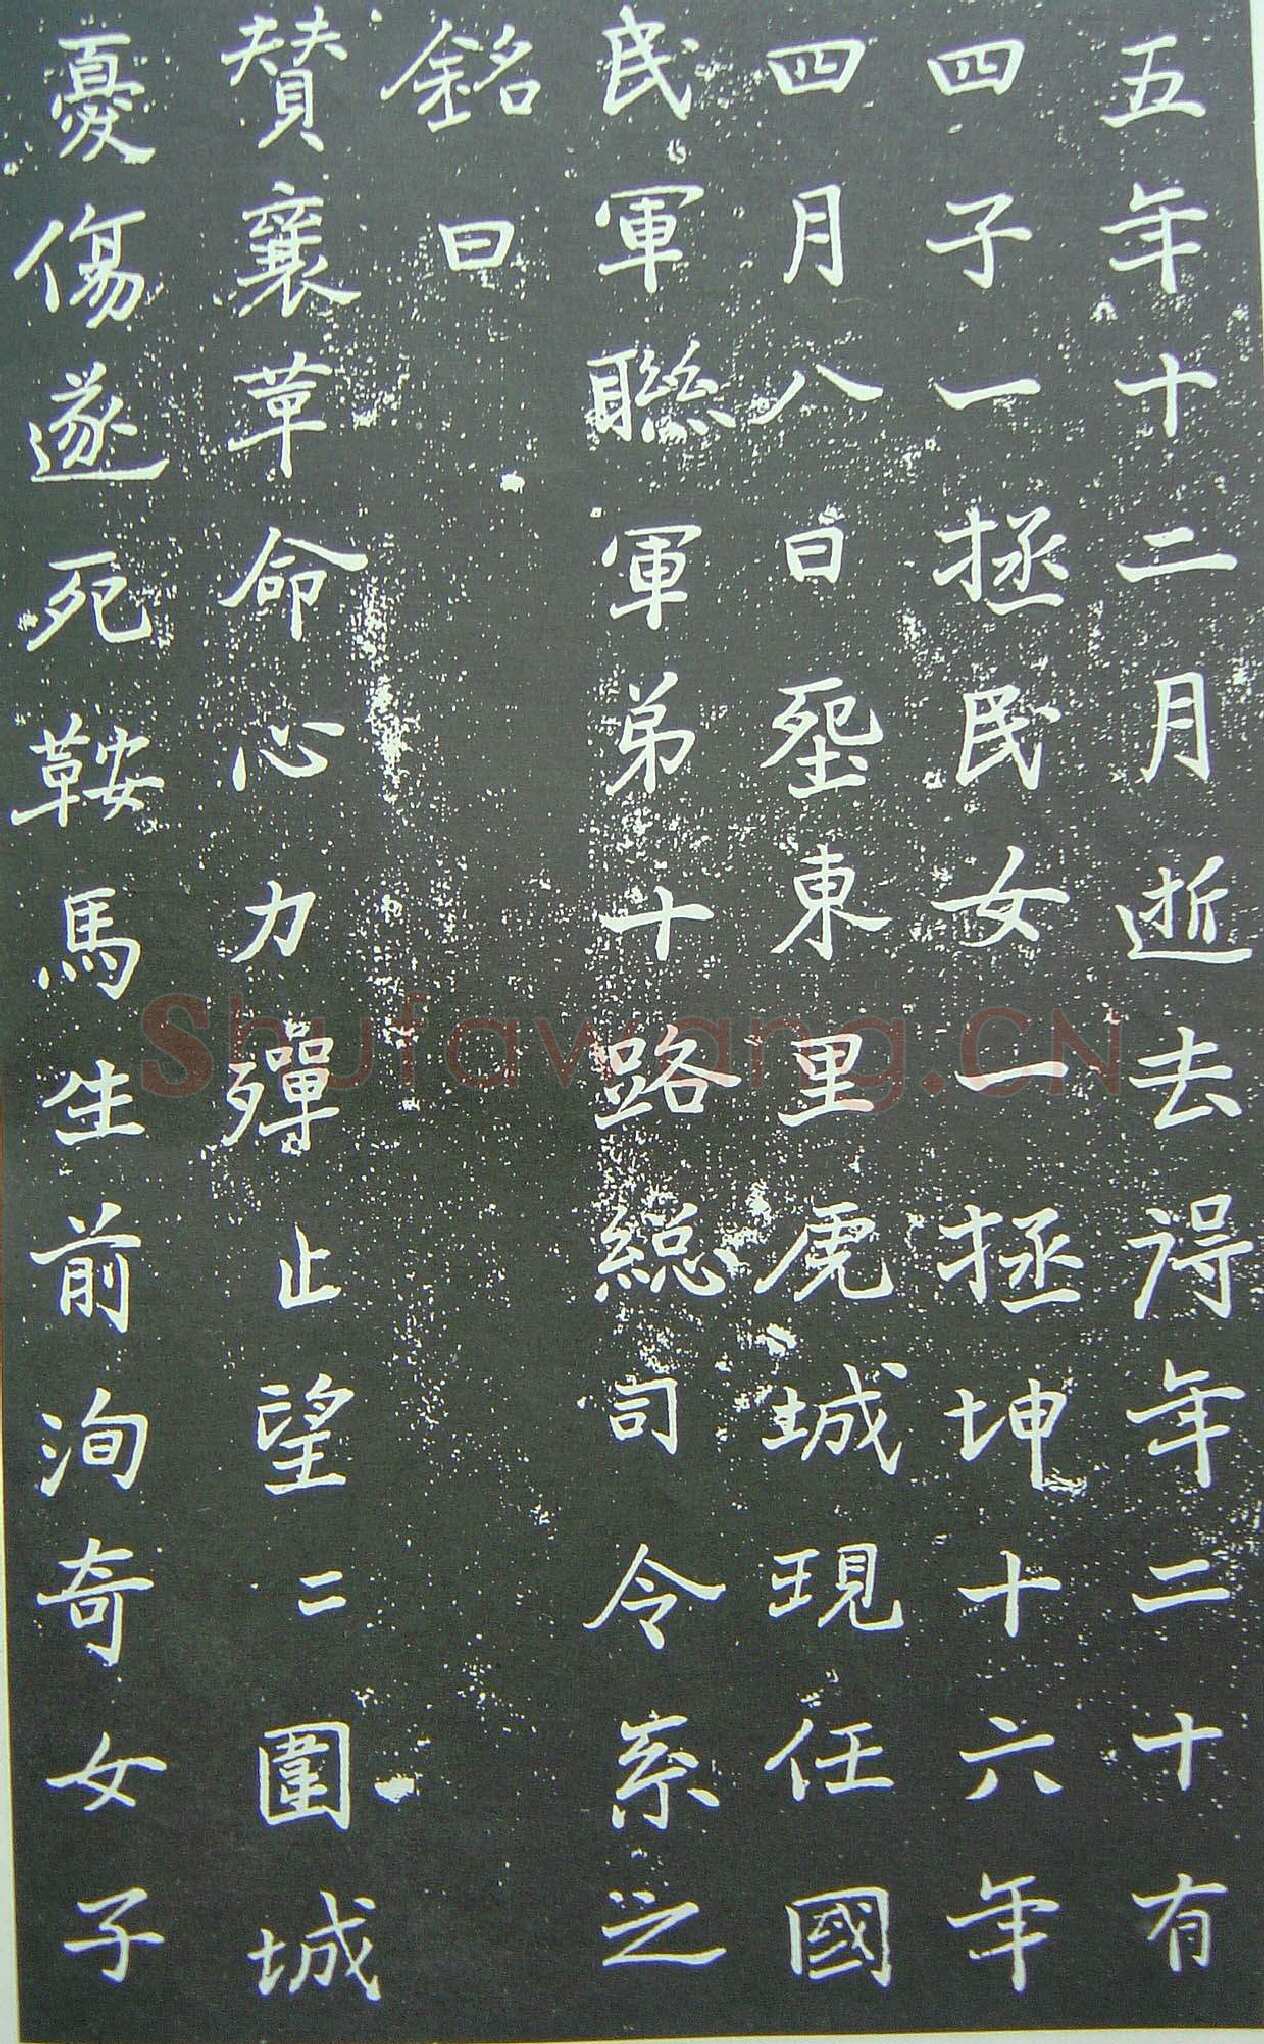 五年十二月逝去淂年二十有
四子一拯民女一拯坤十六年
四月八日堊東里虎城現任國
民軍聯軍弟十路総司令系之
銘曰
賛襄革命心力殫止望二圍城
憂傷遂死鞍馬生前洵奇女子
Shufawang.CN